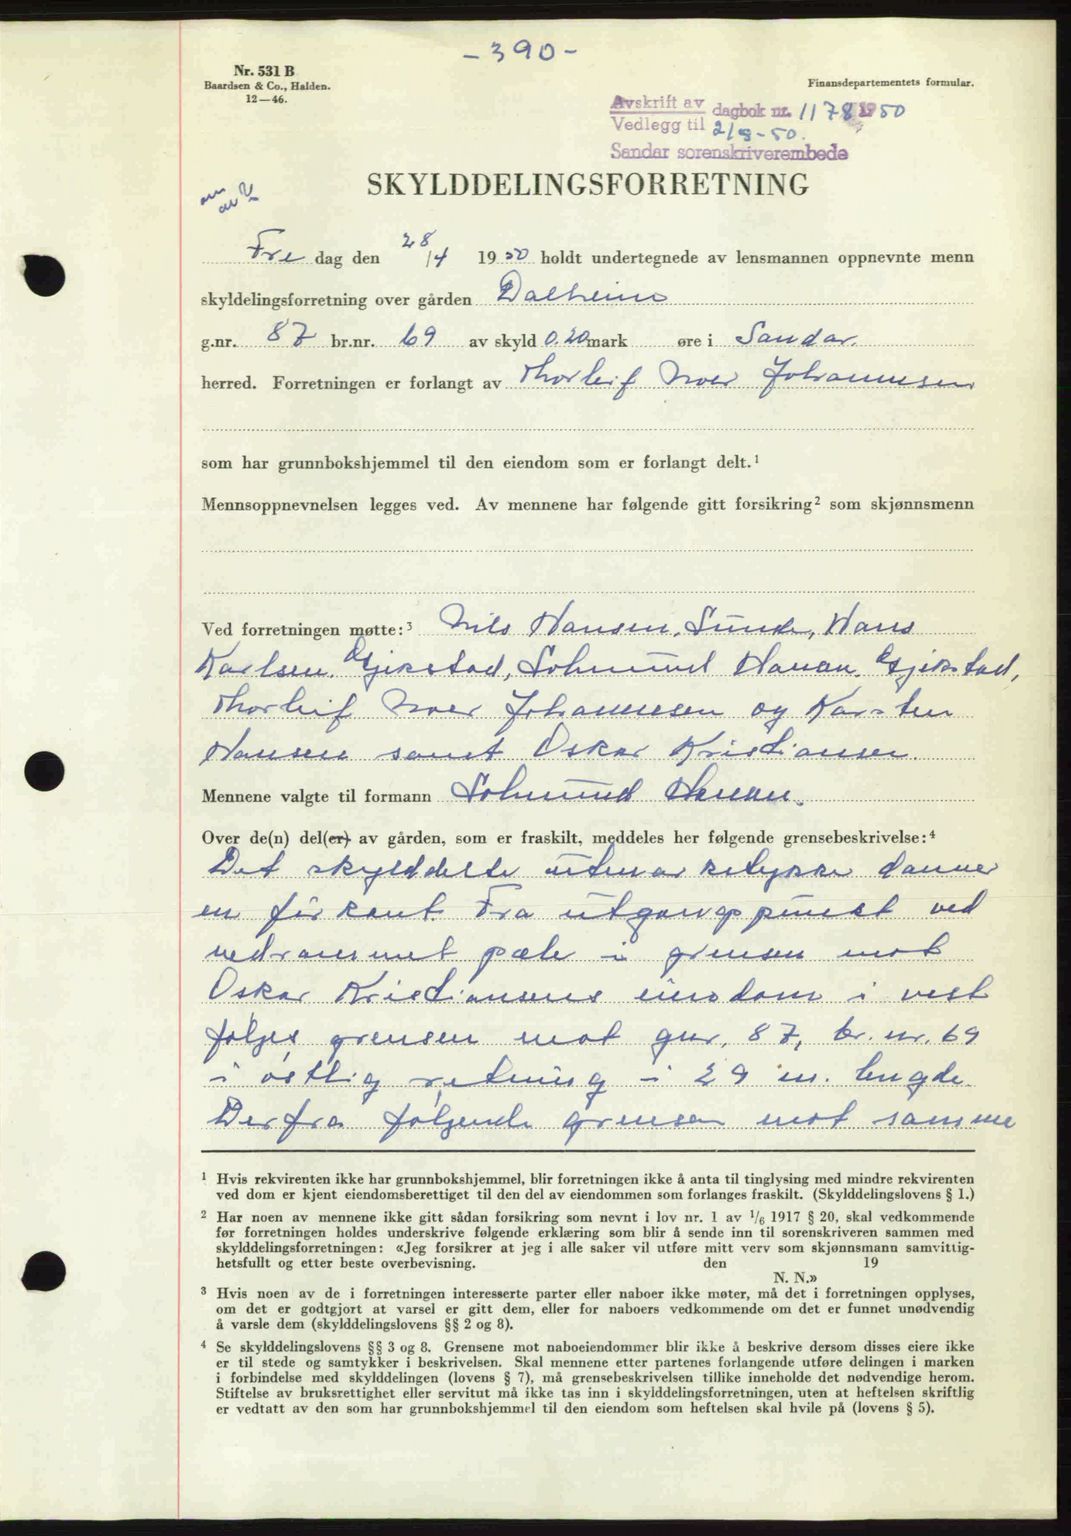 - 390 -
Nr. 531 B
Baardsen & Co., Halden.
12—46.
Finansdepartementets formular.
Avskrift av
Vedlegg til
dagbok nr. 1178 1950
2/5-50.
Sandar sorenskriverembede
SKYLDDELINGSFORRETNING
Fre dag den 28/4 1950 holdt undertegnede av lensmannen oppnevnte menn
skyldelingsforretning over gården Dalheim
g.nr. 87 br.nr. 69 av skyld 0.20 mark øre i Sandar.
herred. Forretningen er forlangt av Thorleif Moer Johannesen
som har grunnbokshjemmel til den eiendom som er forlangt delt.¹
Mennsoppnevnelsen legges ved. Av mennene har følgende gitt forsikring² som skjønnsmenn
Ved forretningen møtte:³ Nils Hansen, Sunde, Hans
Karlsen, Gjekstad, Solmund Hanan, Gjekstad,
Thorleif Moer Johannesen og Karsten
Hansen samt Oskar Kristiansen.
Mennene valgte til formann Solmund Hanan.
Over de(n) del(er) av gården, som er fraskilt, meddeles her følgende grensebeskrivelse:⁴
Det skylddelte utmarkstykke danner
en firkant Fra utgangspunkt ved
nedrammet pæle i grensen mot
Oskar Kristiansens eiendom i vest
følges grensen mot gnr. 87, br. nr. 69
i østlig retning i 29 m. lengde.
Derfra følgende grensen mot samme
¹ Hvis rekvirenten ikke har grunnbokshjemmel, blir forretningen ikke å anta til tinglysing med mindre rekvirenten
ved dom er kjent eiendomsberettiget til den del av eiendommen som forlanges fraskilt. (Skylddelingslovens § 1.)
² Har noen av mennene ikke gitt sådan forsikring som nevnt i lov nr. 1 av 1/6 1917 § 20, skal vedkommende
før forretningen holdes underskrive følgende erklæring som blir å sende inn til sorenskriveren sammen med
skylddelingsforretningen: «Jeg forsikrer at jeg i alle saker vil utføre mitt verv som skjønnsmann samvittig-
hetsfullt og etter beste overbevisning. den 19
N. N.»
³ Hvis noen av de i forretningen interesserte parter eller naboer ikke møter, må det i forretningen opplyses,
om det er godtgjort at varsel er gitt dem, eller for naboers vedkommende om det er funnet unødvendig
å varsle dem (skylddelingslovens §§ 2 og 8).
⁴ Se skylddelingslovens §§ 3 og 8. Grensene mot naboeiendommer blir ikke å beskrive dersom disses eiere ikke
er til stede og samtykker i beskrivelsen. Skal mennene etter partenes forlangende utføre delingen i marken
i forbindelse med skylddelingen (lovens § 7), må grensebeskrivelsen tillike inneholde det nødvendige herom.
Stiftelse av bruksrettighet eller servitut må ikke tas inn i skylddelingsforretningen, uten at heftelsen skriftlig
er vedtatt av den som har grunnbokshjemmel til den eiendom som heftelsen skal hvile på (lovens § 5).